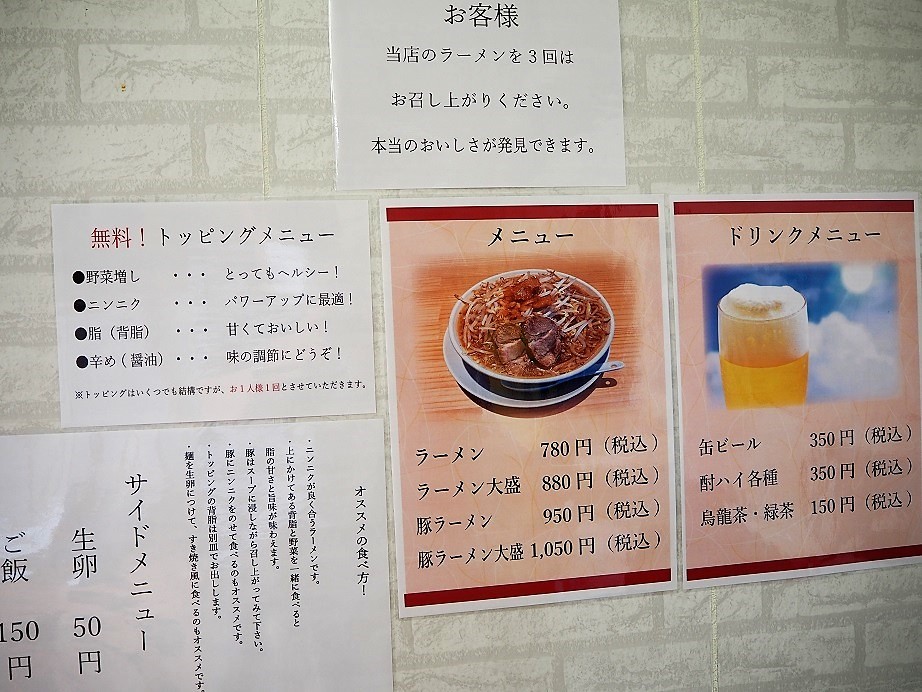 お客様
当店のラーメンを3回は
お召し上がりください。
本当のおいしさが発見できます。
無料！トッピングメニュー
●野菜増し ・・・ とってもヘルシー！
●ニンニク ・・・ パワーアップに最適！
●脂（背脂） ・・・ 甘くておいしい！
●辛め（醤油）・・・ 味の調節にどうぞ！
※トッピングはいくつでも結構ですが、お1人様1回とさせていただきます。
メニュー
ラーメン 780円（税込）
ラーメン大盛 880円（税込）
豚ラーメン 950円（税込）
豚ラーメン大盛 1,050円（税込）
ドリンクメニュー
缶ビール 350円（税込）
酎ハイ各種 350円（税込）
烏龍茶・緑茶 150円（税込）
オススメの食べ方！
・ニンニクが良く合うラーメンです。
・上にかけてある背脂と野菜を一緒に食べると
脂の甘さと旨味が味わえます。
・豚はスープに浸しながら召し上がってみて下さい。
・豚にニンニクをのせて食べるのもオススメです。
・トッピングの背脂は別皿でお出しします。
・麺を生卵につけて、すき焼き風に食べるのもオススメです。
サイドメニュー
生卵 50円
ご飯 150円